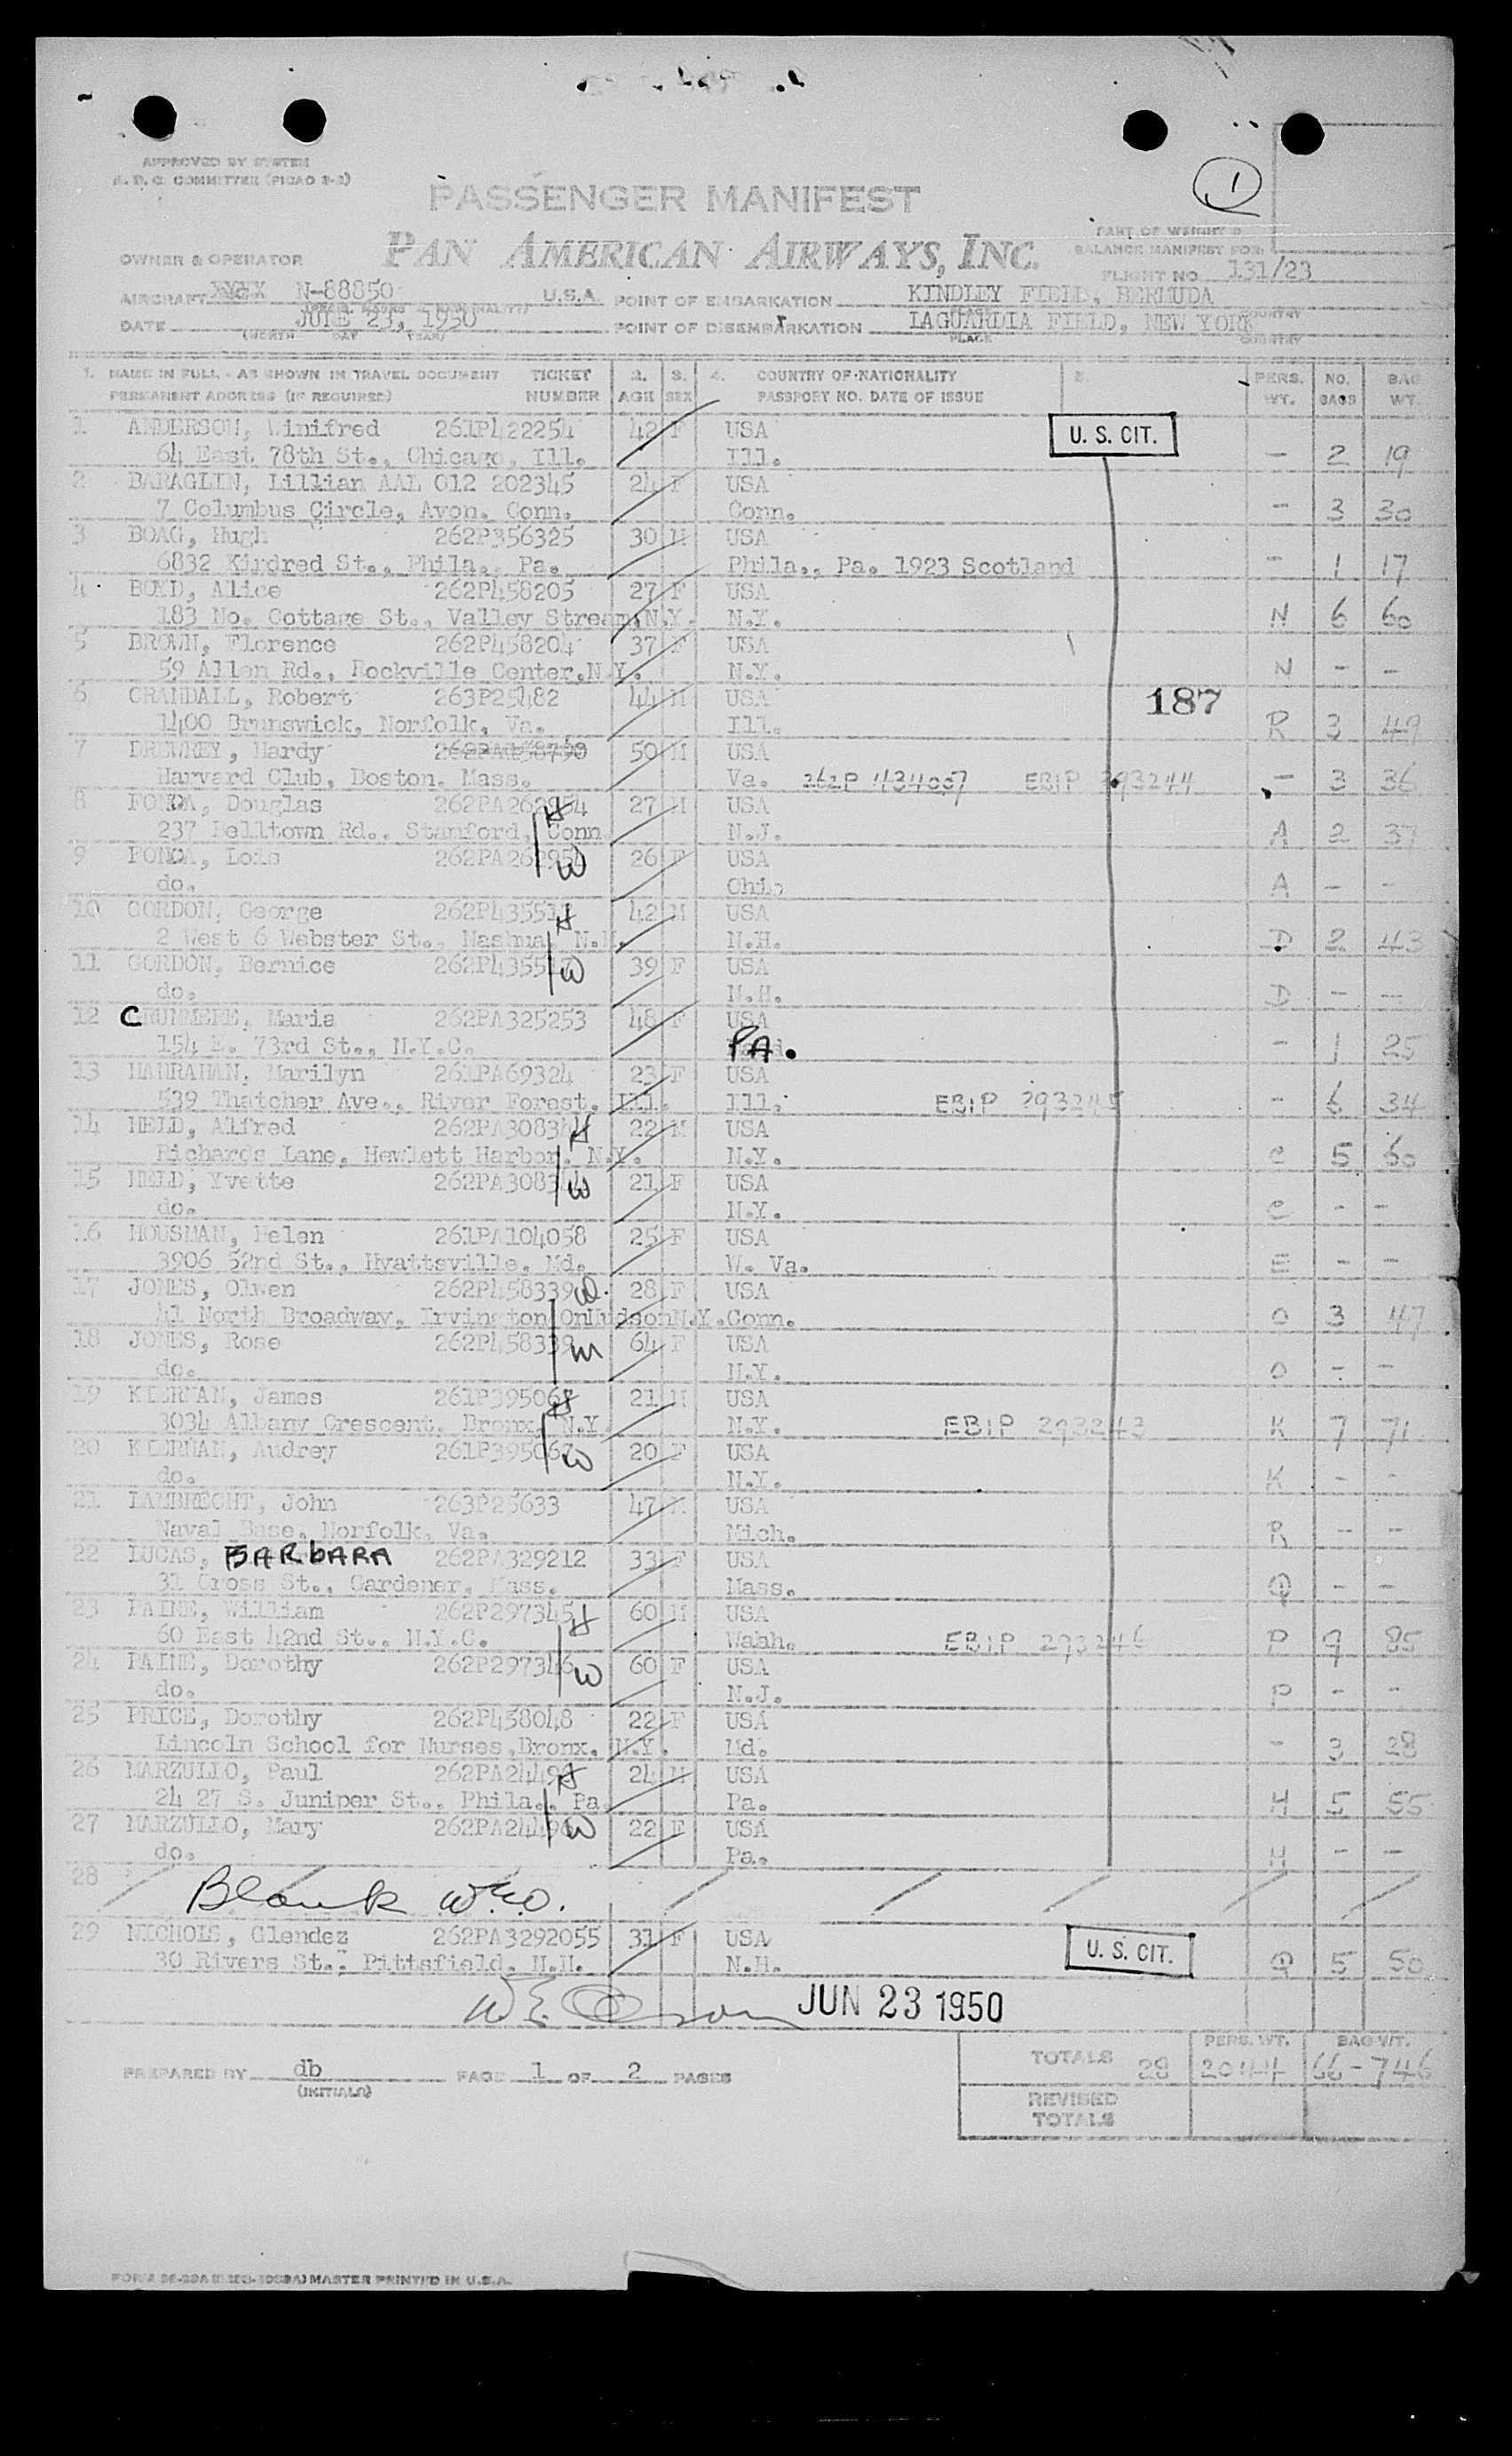 APPROVED BY SYSTEM
COMMITTEE (PICAO 2-2)
PASSENGER MANIFEST
1
PART OF WEIGHT &
PAN AMERICAN AIRWAYS, INC.
BALANCE MANIFEST FOR:
OWNER & OPERATOR
FLIGHT NO. 131/23
AIRCRAFT N-88850 U.S.A. POINT OF EMBARKATION KINDLEY FIELD, BERMUDA
DATE JUNE 23, 1950 POINT OF DISEMBARKATION LAGUARDIA FIELD, NEW YORK
(MONTH DAY YEAR) PLACE COUNTRY
1. NAME IN FULL - AS SHOWN IN TRAVEL DOCUMENT TICKET 2. 3. 4. COUNTRY OF NATIONALITY 5. PERS. NO. BAG
PERMANENT ADDRESS (IF REQUIRED) NUMBER AGE SEX PASSPORT NO. DATE OF ISSUE WT. BAGS WT.
1 ANDERSON, Winifred 261P422254 42 F USA U. S. CIT.
64 East 78th St., Chicago, Ill. Ill. - 2 19
2 BARAGLIN, Lillian AAL 012 202345 24 F USA
7 Columbus Circle, Avon, Conn. Conn. - 3 30
3 BOAG, Hugh 262P356325 30 M USA
6832 Kindred St., Phila., Pa. Phila., Pa. 1923 Scotland - 1 17
4 BOYD, Alice 262P458205 27 F USA
183 No. Cottage St., Valley Stream, N.Y. N.Y. N 6 60
5 BROWN, Florence 262P458204 37 F USA
59 Allen Rd., Rockville Center, N.Y. N.Y. N - -
6 CRANDALL, Robert 263P25482 44 M USA 187
1400 Brunswick, Norfolk, Va. Ill. R 3 49
7 DREWREY, Hardy 50 M USA
Harvard Club, Boston, Mass. Va. 262P 434007 EBIP 293244 - 3 36
8 FONDA, Douglas 262PA262954 H 27 M USA
237 Belltown Rd., Stamford, Conn. N.J. A 2 37
9 FONDA, Lois 262PA262954 W 26 F USA
do. Ohio A - -
10 GORDON, George H 42 M USA
2 West 6 Webster St., Nashua, N.H. N.H. D 2 43
11 GORDON, Bernice W 39 F USA
do. N.H. D - -
12 CRUMMERE, Maria 262PA325253 48 F USA
154 E. 73rd St., N.Y.C. PA. - 1 25
13 HANRAHAN, Marilyn 261PA69324 23 F USA
539 Thatcher Ave., River Forest, Ill. Ill. EBIP 293245 - 6 34
14 HELD, Alfred H 22 M USA
Richards Lane, Hewlett Harbor, N.Y. N.Y. e 5 60
15 HELD, Yvette W 21 F USA
do. N.Y. e - -
16 HOUSMAN, Helen 261PA104058 25 F USA
3906 52nd St., Hyattsville, Md. W. Va. E - -
17 JONES, Olwen 262P458339 D. 28 F USA
41 North Broadway, Irvington On Hudson N.Y. Conn. O 3 47
18 JONES, Rose 262P458339 m 64 F USA
do. N.Y. O - -
19 KIERNAN, James H 21 M USA
3034 Albany Crescent, Bronx, N.Y. N.Y. EBIP 293243 K 7 71
20 KIERNAN, Audrey 261P395067 W 20 F USA
do. N.Y. K - -
21 LAMBRECHT, John 263P25633 47 M USA
Naval Base, Norfolk, Va. Mich. R - -
22 LUCAS, BARbARA 262PA329212 33 F USA
31 Cross St., Gardener, Mass. Mass. Q - -
23 PAINE, William 262P297345 H 60 M USA
60 East 42nd St., N.Y.C. Wash. EBIP 293246 P 9 85
24 PAINE, Dorothy 262P297346 W 60 F USA
do. N.J. P - -
25 PRICE, Dorothy 262P458048 22 F USA
Lincoln School for Nurses, Bronx, N.Y. Md. - 3 28
26 MARZULLO, Paul H 24 M USA
24 27 S. Juniper St., Phila., Pa. Pa. H 5 55
27 MARZULLO, Mary W 22 F USA
do. Pa. H - -
28 Blank
29 NICHOLS, Glendez 262PA3292055 31 F USA U. S. CIT.
30 Rivers St., Pittsfield, N.H. N.H. Q 5 50
JUN 23 1950
PERS. WT. BAG WT.
PREPARED BY db PAGE 1 OF 2 PAGES TOTALS 28 2044 66-746
(INITIALS)
REVISED
TOTALS
MASTER PRINTED IN U.S.A.